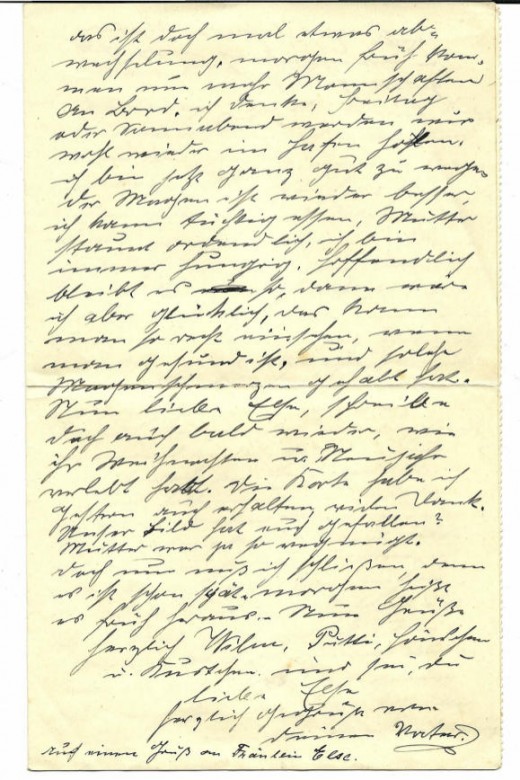 das ist doch mal etwas ab-
wechselung, morgen früh kom-
men nun mehr Mannschaften
an Bord, ich denke, Freitag
oder Sonnabend werden wir
wohl wieder im Hafen
ich bin jetzt ganz gut zu wege
der Magen ist wieder besser,
ich kann tüchtig essen, Mutter
staunt ordendlich, ich bin
immer hungrig. hoffendlich
bleibt es so, dann wäre
ich aber glücklich, das kann
man so recht wenn
man gesund ist, und solche
Magenschmerzen gehabt hat.
Nun liebe Else, schreibe
doch auch bald wieder, wie
ihr Weihnachten u. Neujahr
verlebt habt. Die Karte habe ich
gestern auch erhalten vielen Dank.
Unser Bild hat euch gefallen?
Mutter war ja so vergnügt.
Doch nun muß ich schließen, denn
es ist schon spät, morgen heißt
es früh heraus. Nun Grüße
herzlich Wilm, Putti,
u. Kurtchen und sei, du
liebe Else
herzlich gegrüßt von
deinem Vater.
auch einen Gruß an Fräulein Else.